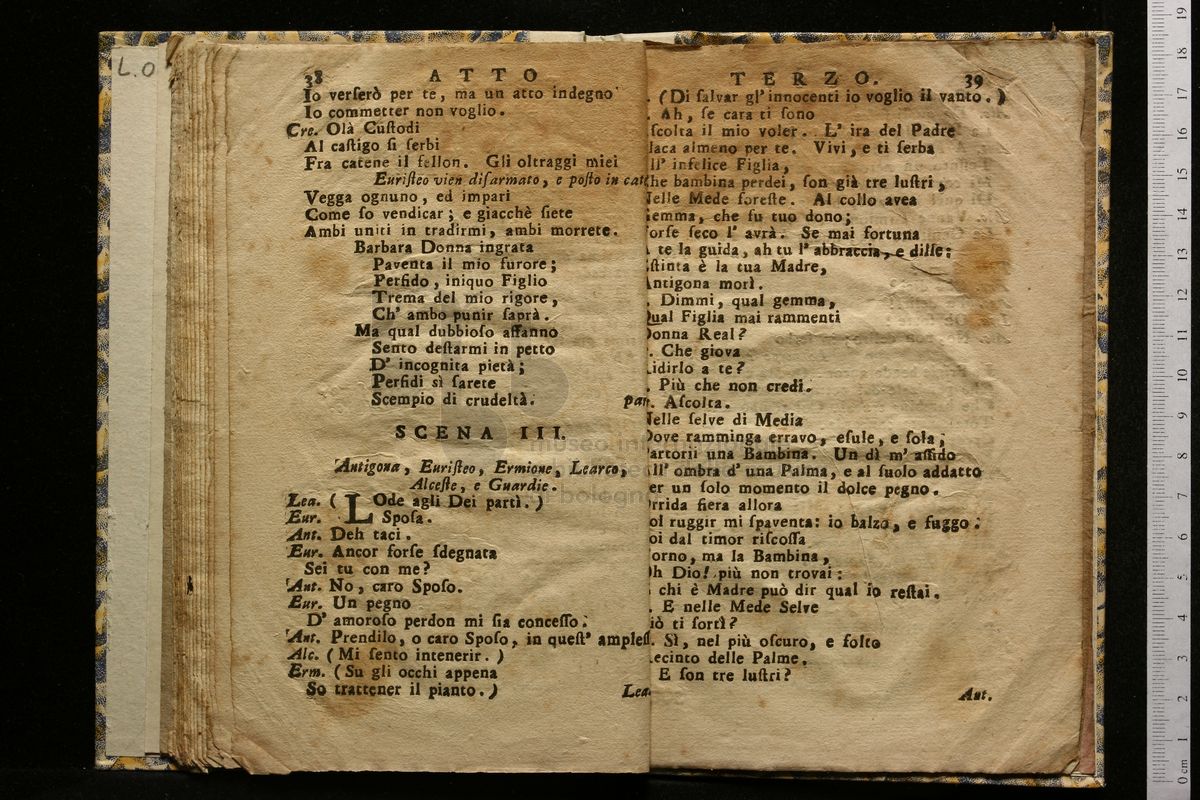 L.O
38 ATTO
Io verſerò per te, ma un atto indegno
Io commetter non voglio.
Cre. Olà Cuſtodi
Al caſtigo ſi ſerbi
Fra catene il fellon. Gli oltraggi miei
Euriſteo vien diſarmato, e poſto in cat
Vegga ognuno, ed impari
Come ſo vendicar; e giacchè ſiete
Ambi uniti in tradirmi, ambi morrete.
Barbara Donna ingrata
Paventa il mio furore;
Perfido, iniquo Figlio
Trema del mio rigore,
Ch' ambo punir ſaprà.
Ma qual dubbioſo affanno
Sento deſtarmi in petto
D' incognita pietà;
Perfidi sì ſarete
Scempio di crudeltà. par
SCENA III.
Antigona, Euriſteo, Ermione, Learco,
Alceſte, e Guardie.
Lea. (LOde agli Dei partì.)
Eur. Spoſa.
Ant. Deh taci.
Eur. Ancor forſe ſdegnata
Sei tu con me?
Ant. No, caro Spoſo.
Eur. Un pegno
D' amoroſo perdon mi ſia conceſſo.
Ant. Prendilo, o caro Spoſo, in queſt' ampleſ
Alc. (Mi ſento intenerir.)
Erm. (Su gli occhi appena
So trattener il pianto.)
Lea.
TERZO. 39
. (Di ſalvar gl' innocenti io voglio il vanto.)
. Ah, ſe cara ti ſono
ſcolta il mio voler. L' ira del Padre
laca almeno per te. Vivi, e ti ſerba
ll' infelice Figlia,
he bambina perdei, ſon già tre luſtri,
elle Mede foreſte. Al collo avea
emma, che fu tuo dono;
orſe ſeco l' avrà. Se mai fortuna
te la guida, ah tu l' abbraccia, e diſſe:
ſtinta è la tua Madre,
ntigona morì.
. Dimmi, qual gemma,
ual Figlia mai rammenti
onna Real?
. Che giova
idirlo a te?
. Più che non credi.
. Aſcolta.
elle ſelve di Media
ove ramminga erravo, eſule, e ſola;
artorii una Bambina. Un dì m' aſſido
ll' ombra d' una Palma, e al ſuolo addatto
er un ſolo momento il dolce pegno.
rrida fiera allora
ol ruggir mi ſpaventa: io balzo, e fuggo.
oi dal timor riſcoſſa
orno, ma la Bambina,
h Dio! più non trovai:
chi è Madre può dir qual io reſtai.
. E nelle Mede Selve
iò ti ſortì?
. Sì, nel più oſcuro, e folto
ecinto delle Palme.
E ſon tre luſtri?
Ant.